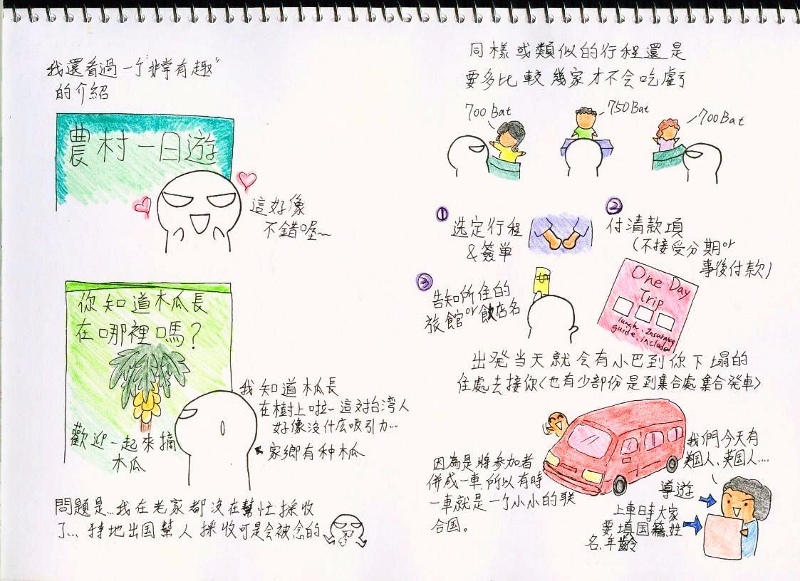 我還看過一个"非常有趣"
的介紹
農村一日遊
這好像
不錯喔~
你知道木瓜長
在哪裡嗎?
歡迎一起來摘
木瓜
我知道木瓜長
在樹上啦~這对台湾人
好像沒什么吸引力...
家鄉有种木瓜
問題是...我在老家都沒在幫忙採收
了...特地出国幫人採收可是会被念的
同樣或類似的行程還是
要多比較幾家才不会吃虧
700 Bat
750 Bat
700 Bat
① 选定行程
&簽單
② 付清款項
(不接受分期or
事後付款)
③ 告知所住的
旅館or飯店名
One Day
Trip
lunch. Insurance
guide. included
出発当天就会有小巴到你下塌的
住處去接你(也有少部份是到集合處集合発車)
因為是將参加者
併成一車,所以有時
一車就是一个小小的联
合国。
我們今天有
美国人,英国人...
導遊
上車時大家
要填国籍,姓
名,年齡